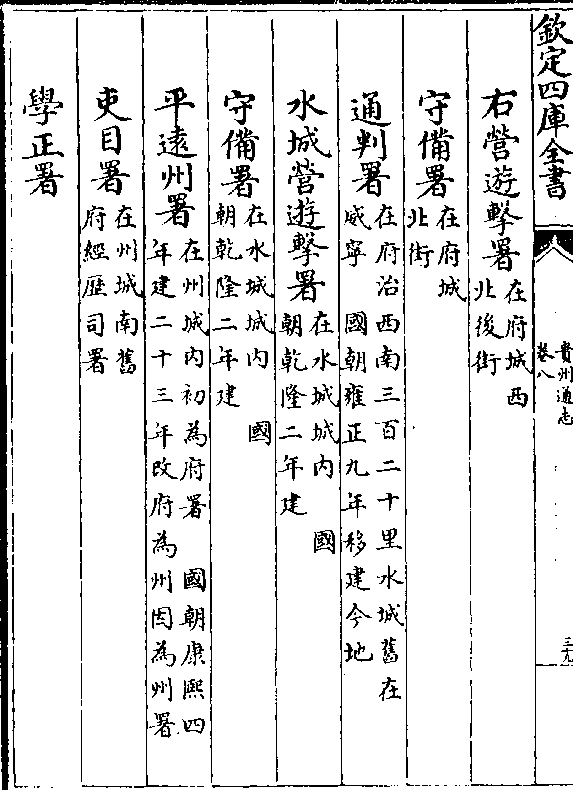 欽定四庫全書
貴州通志
卷八
三九
右營遊擊署在府城西
北後街
守備署在府城
北街
通判署在府治西南三百二十里水城舊在
威寧　國朝雍正九年移建今地
水城營遊擊署在水城城内　國
朝乾隆二年建
守備署在水城城内　國
朝乾隆二年建
平遠州署在州城内初為府署　國朝康熙四
年建二十三年改府為州因為州署
吏目署在州城南舊
府經歷司署
學正署